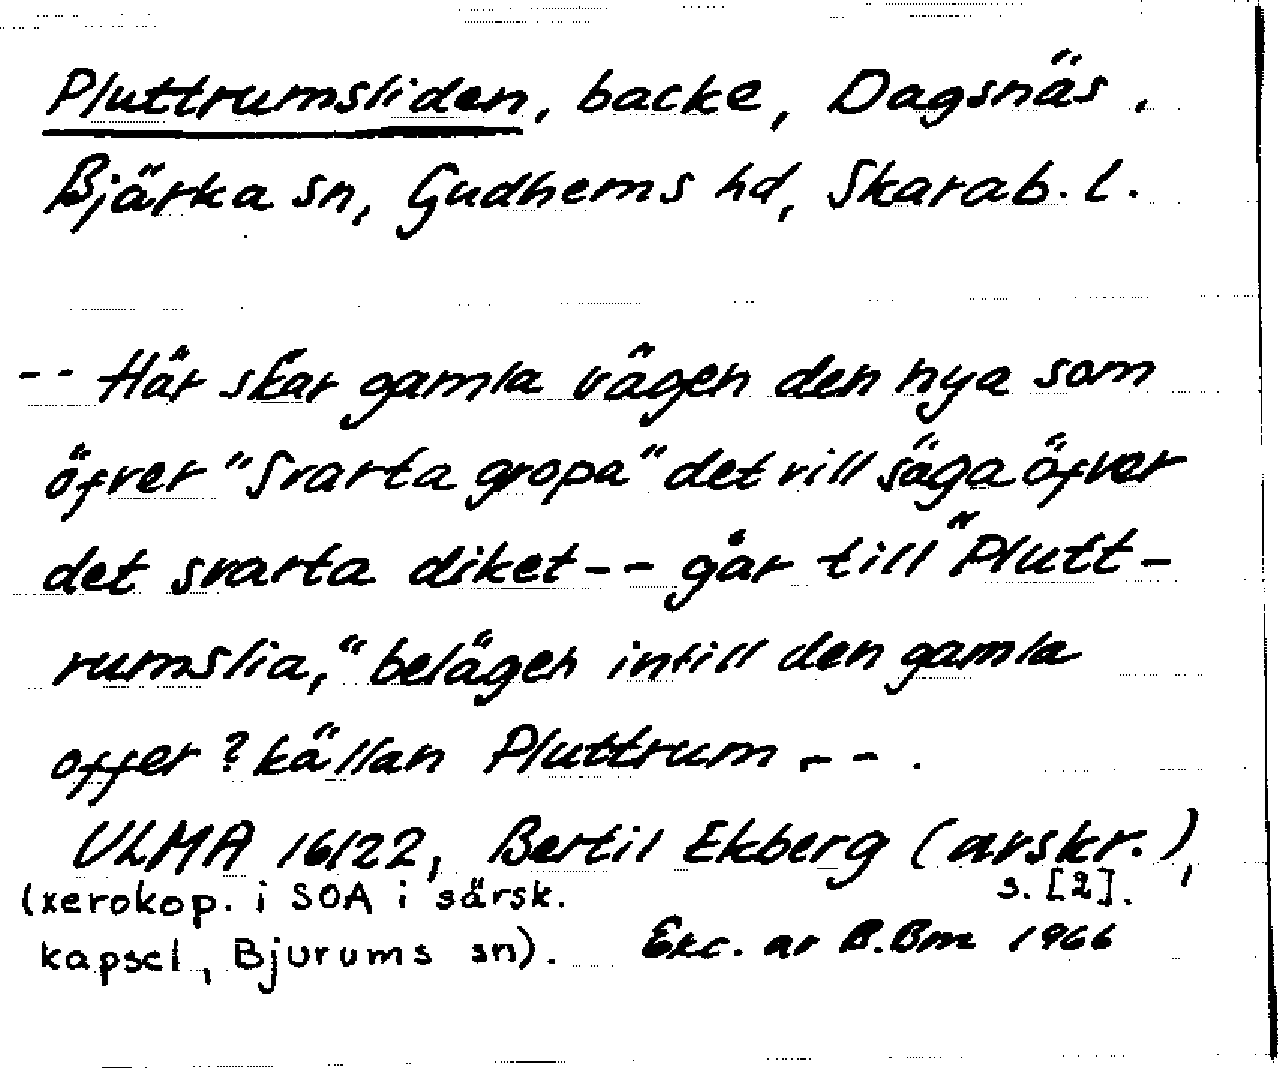 Pluttrumsliden, backe, Dagsnäs,
Bjärka sn, Gudhems hd, Skarab. l.
-- Här skär gamla vägen den nya som
öfver "Svarta gropa" det vill säga öfver
det svarta diket -- går till "Plutt-
rumslia," belägen intill den gamla
offer? källan Pluttrum -- .
ULMA 16122, Bertil Ekberg (avskr.),
s. [2].
(xerokop. i SOA i särsk.
kapsel, Bjurums sn).
Exc. av B.Bm 1966